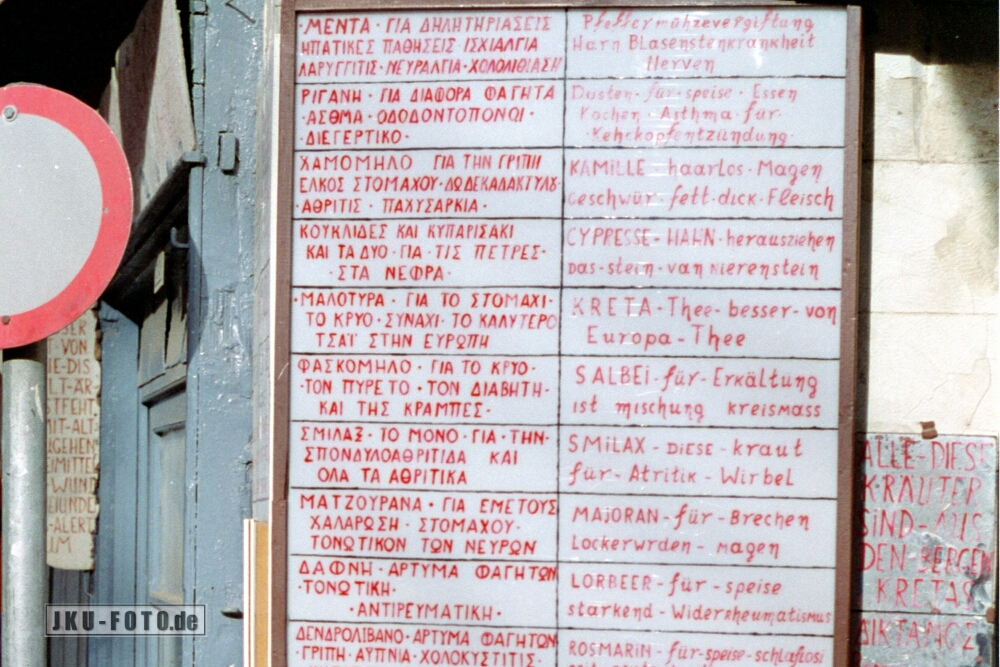 ·ΜΕΝΤΑ · ΓΙΑ ΔΗΛΗΤΗΡΙΑΣΕΙΣ
ΗΠΑΤΙΚΕΣ ΠΑΘΗΣΕΙΣ · ΙΣΧΙΑΛΓΙΑ
ΛΑΡΥΓΓΙΤΙΣ · ΝΕΥΡΑΛΓΙΑ · ΧΟΛΟΛΙΘΙΑΣΗ
Pfeffermühzevergiftung
Harn BLasenstenkrankheit
Nerven
ΡΙΓΑΝΗ · ΓΙΑ ΔΙΑΦΟΡΑ ΦΑΓΗΤΑ
·ΑΣΘΜΑ · ΟΔΟΔΟΝΤΟΠΟΝΟΙ ·
·ΔΙΕΓΕΡΤΙΚΟ·
Dosten · für · speise · Essen
Kochen · Asthma · für ·
·Kehckopfentzündung·
ΧΑΜΟΜΗΛΟ ΓΙΑ ΤΗΝ ΓΡΙΠΗ
ΕΛΚΟΣ ΣΤΟΜΑΧΟΥ · ΔΩΔΕΚΑΛΑΚΤΥΛΟΥ
·ΑΘΡΙΤΙΣ · ΠΑΧΥΣΑΡΚΙΑ ·
KAMiLLE - haarlos · Magen
Geschwür · fett · dick · Fleisch
ΚΟΥΚΛΙΔΕΣ ΚΑΙ ΚΥΠΑΡΙΣΑΚΙ
ΚΑΙ ΤΑ ΔΥΟ · ΓΙΑ · ΤΙΣ ΠΕΤΡΕΣ·
·ΣΤΑ ΝΕΦΡΑ·
CYPRESSE - HAHN · herausziehen
Das · stein · van Nierenstein
·ΜΑΛΟΤΥΡΑ · ΓΙΑ ΤΟ ΣΤΟΜΑΧΙ·
ΤΟ ΚΡΥΟ · ΣΥΝΑΧΙ · ΤΟ ΚΑΛΥΤΕΡΟ
ΤΣΑΪ ΣΤΗΝ ΕΥΡΩΠΗ
KRETA - Thee - besser - von
Europa - Thee
ΦΑΣΚΟΜΗΛΟ · ΓΙΑ ΤΟ ΚΡΥΟ·
·ΤΟΝ ΠΥΡΕΤΟ · ΤΟΝ ΔΙΑΒΗΤΗ·
ΚΑΙ ΤΗΣ ΚΡΑΜΠΕΣ·
SALBEi - für - Erkältung
ist mischung kreismass
ΣΜΙΛΑΞ · ΤΟ ΜΟΝΟ · ΓΙΑ · ΤΗΝ·
ΣΠΟΝΔΥΛΟΑΘΡΙΤΙΔΑ ΚΑΙ
ΟΛΑ ΤΑ ΑΘΡΙΤΙΚΑ
SMiLAX - DiESE - kraut
für - Atritik - Wirbel
ΜΑΤΖΟΥΡΑΝΑ · ΓΙΑ ΕΜΕΤΟΥΣ
ΧΑΛΑΡΩΣΗ · ΣΤΟΜΑΧΟΥ ·
ΤΟΝΩΤΙΚΟΝ ΤΩΝ ΝΕΥΡΩΝ
MAJORAN - für - Brechen
Lockerwrden - magen
ΔΑΦΝΗ · ΑΡΤΥΜΑ ΦΑΓΗΤΩΝ
·ΤΟΝΩΤΙΚΗ·
·ΑΝΤΙΡΕΥΜΑΤΙΚΗ·
LORBEER - für - speise
stärkend - Widerrheumatismus
ΔΕΝΔΡΟΛΙΒΑΝΟ · ΑΡΤΥΜΑ ΦΑΓΗΤΩΝ
·ΓΡΙΠΗ · ΑΥΠΝΙΑ · ΧΟΛΟΚΥΣΤΙΤΙΣ·
ROSMARiN - für - speise - schlaflosi
ALLE - DiESE
KRÄUTER
SiND - AUS
DEN - BERGEN
KRETAS
ΔΙΚΤΑΝΟΣ
- VON
E-DIS
LT-ÄR-
STFEHT
MIT-ALT
GEHEN
EIMITTE
-WUND
-ALERT
UM
JKU-FOTO.de